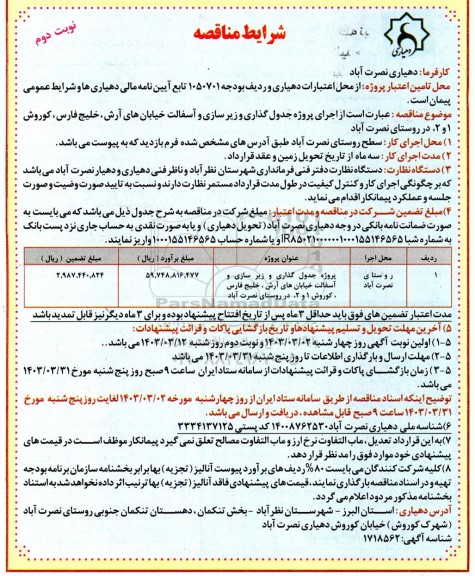 نوبت دوم
شرایط مناقصه
دهیاری
کارفرما: دهیاری نصرت آباد
محل تامین اعتبار پروژه: از محل اعتبارات دهیاری و ردیف بودجه ۱۰۵۰۷۰۱ تابع آیین نامه مالی دهیاری ها و شرایط عمومی
پیمان است.
موضوع مناقصه: عبارت است از اجرای پروژه جدول گذاری و زیر سازی و آسفالت خیابان های آرش، خلیج فارس، کوروش
۱ و ۲، در روستای نصرت آباد
۱) محل اجرای کار: سطح روستای نصرت آباد طبق آدرس های مشخص شده فرم بازدید که به پیوست می باشد.
۲) مدت اجرای کار: سه ماه از تاریخ تحویل زمین و عقد قرارداد.
۳) دستگاه نظارت: دستگاه نظارت دفتر فنی فرمانداری شهرستان نظرآباد و ناظر فنی دهیاری و دهیار نصرت آباد می باشد
که بر چگونگی اجرای کار و کنترل کیفیت در طول مدت قرارداد مستمر نظارت دارند و نسبت به تایید صورت وضیت و صورت
جلسه و عملکرد پیمانکار اقدام می نماید.
۴) مبلغ تضمین شرکت در مناقصه و مدت اعتبار: مبلغ شرکت در مناقصه به شرح جدول ذیل می باشد که می بایست به
صورت ضمانت نامه بانکی در وجه دهیاری نصرت آباد (تحویل دهیاری) و یا به صورت نقدی به حساب جاری نزد پست بانک
به شماره شبا و یا شماره حساب ۱۰۰۰۱۵۵۱۴۶۵۶۵ واریز نمایند.
ردیف محل اجرا عنوان پروژه مبلغ برآورد (ریال) مبلغ تضمین (ریال)
۱ روستای نصرت آباد پروژه جدول گذاری و زیر سازی و آسفالت خیابان های آرش، خلیج فارس، کوروش ۱ و ۲، در روستای نصرت آباد ۵۹,۷۴۸,۸۱۶,۴۷۷ ۲,۹۸۷,۴۴۰,۸۲۴
ParsNamadData
مدت اعتبار تضمین های فوق باید حداقل ۳ ماه پس از تاریخ افتتاح پیشنهاد بوده و برای ۳ ماه دیگر نیز قابل تمدید باشد
۵) آخرین مهلت تحویل و تسلیم پیشنهادها و تاریخ بازگشایی پاکات و قرائت پیشنهادات:
۵-۱) اولین نوبت آگهی روز چهار شنبه ۱۴۰۳/۰۳/۰۲ و نوبت دوم روز شنبه ۱۴۰۳/۰۳/۱۲ می باشد..
۵-۲) مهلت ارسال و بارگذاری اطلاعات تا روز پنج شنبه ۱۴۰۳/۰۳/۳۱ می باشد
۵-۳) زمان بازگشای پاکات و قرائت پیشنهادات از سامانه ستاد ایران ساعت ۹ صبح روز پنج شنبه مورخ ۱۴۰۳/۰۳/۳۱
می باشد.
توضیح اینکه اسناد مناقصه از طریق سامانه ستاد ایران از روز چهارشنبه مورخه ۱۴۰۳/۰۳/۰۲ لغایت روز پنج شنبه مورخ
۱۴۰۳/۰۳/۳۱ ساعت ۹ صبح قابل مشاهده، دریافت و ارسال می باشد.
۶) شناسه ملی دهیاری نصرت آباد ۱۴۰۰۸۷۶۲۵۳۰ کد پستی ۳۳۳۴۱۳۷۱۲۵
۷) به این قرارداد تعدیل، ماب التفاوت نرخ ارز و ماب التفاوت مصالح تعلق نمی گیرد پیمانکار موظف است در قیمت های
پیشنهادی خود موارد فوق را مد نظر قرار دهد.
۸) کلیه شرکت کنندگان می بایست ۸۰% ردیف های برآورد پیوست آنالیز (تجزیه) بها برابر بخشنامه سازمان برنامه بودجه
تهیه و در اسناد مناقصه بارگذاری نمایند، قیمت های پیشنهادی فاقد آنالیز (تجزیه) بها ترتیب اثر داده نخواهد شد به استناد
بخشنامه مذکور مردود اعلام می گردد.
آدرس دهیاری: استان البرز - شهرستان نظرآباد - بخش تنکمان، دهستان تنکمان جنوبی روستای نصرت آباد
(شهرک کوروش) خیابان کوروش دهیاری نصرت آباد
شناسه آگهی: ۱۷۱۸۵۶۲